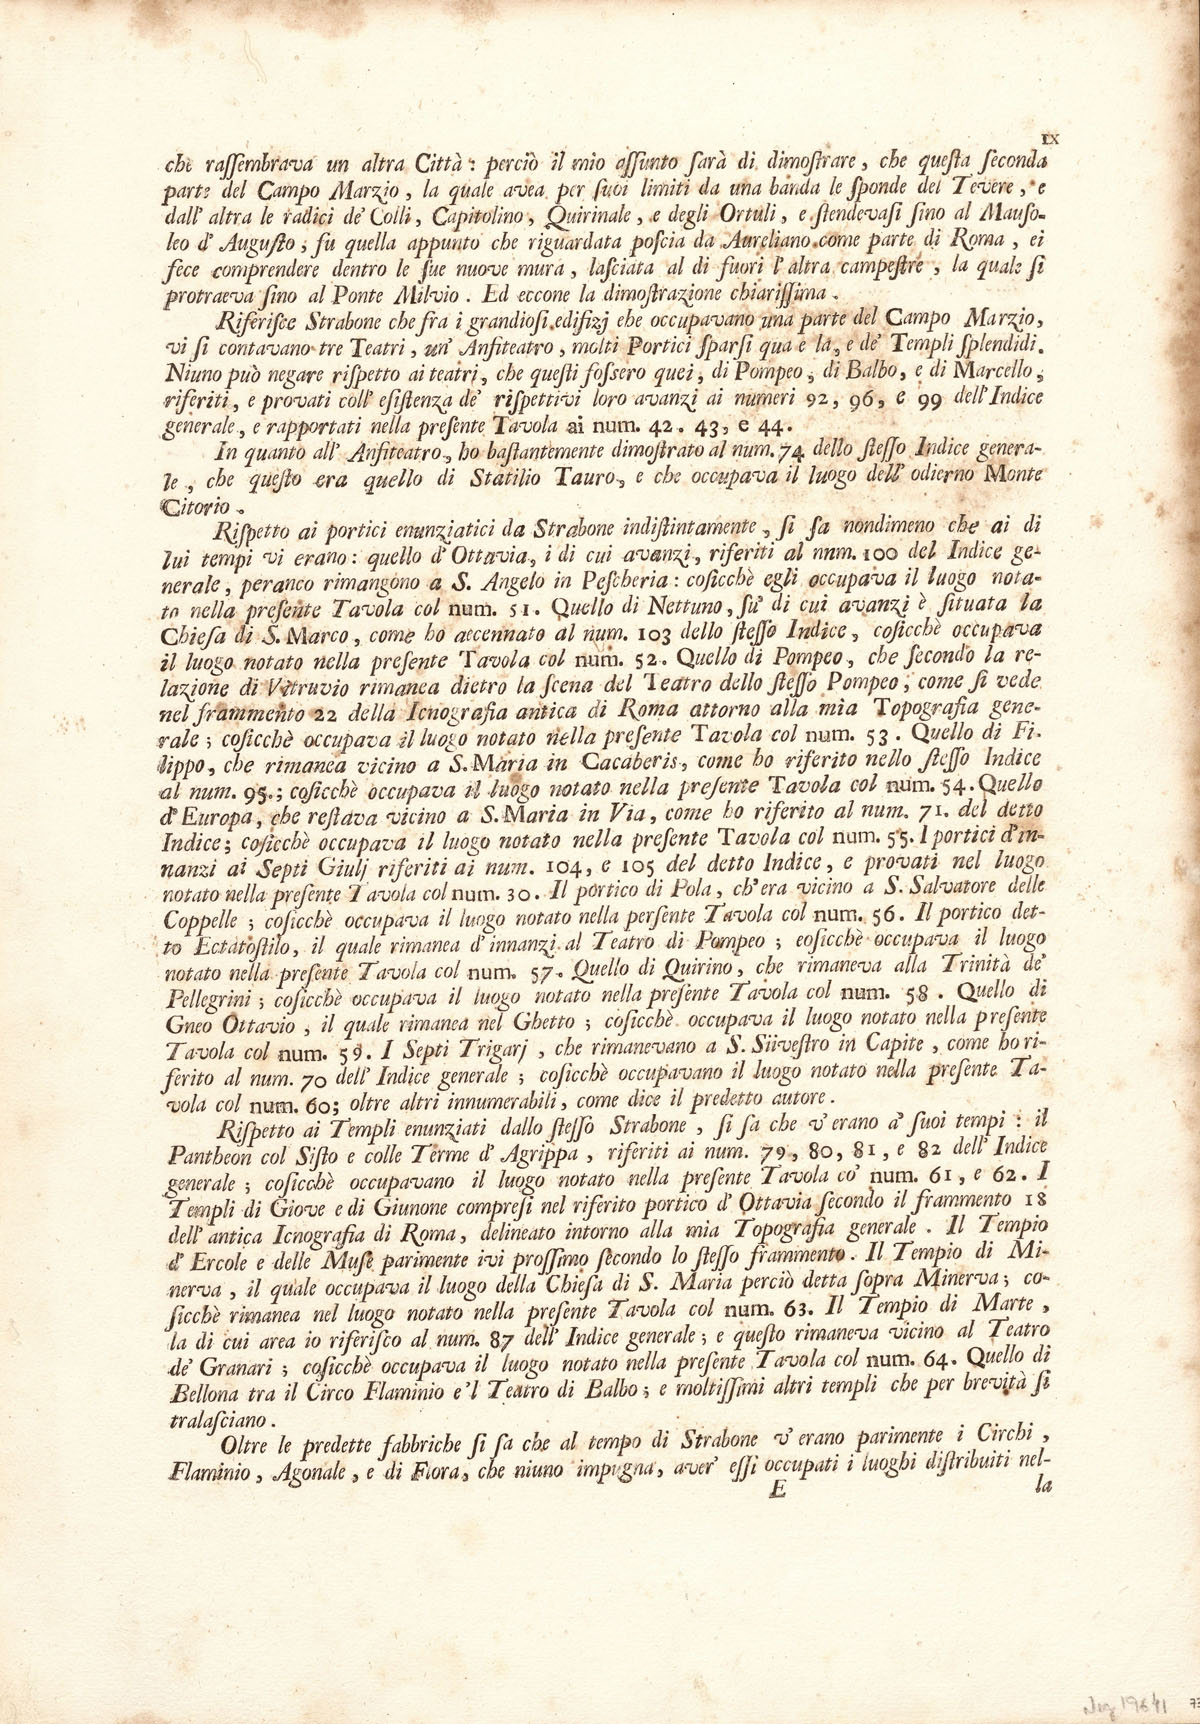 IX
che raſſembrava un altra Città : perciò il mio aſſunto ſarà di dimoſtrare, che queſta ſeconda
parte del Campo Marzio, la quale avea per ſuoi limiti da una banda le ſponde del Tevere, e
dall' altra le radici de' Colli, Capitolino, Quirinale, e degli Ortuli, e ſtendevaſi ſino al Mauſo-
leo d' Auguſto, fu quella appunto che riguardata poſcia da Aureliano come parte di Roma, ei
fece comprendere dentro le ſue nuove mura, laſciata al di fuori l' altra campeſtre, la quale ſi
protraeva ſino al Ponte Milvio. Ed eccone la dimoſtrazione chiariſſima.
Riferiſce Strabone che fra i grandioſi edifizj ehe occupavano una parte del Campo Marzio,
vi ſi contavano tre Teatri, un' Anfiteatro, molti Portici ſparſi qua e la, e de' Templi ſplendidi.
Niuno può negare riſpetto ai teatri, che queſti foſſero quei, di Pompeo, di Balbo, e di Marcello,
riferiti, e provati coll' eſiſtenza de' riſpettivi loro avanzi ai numeri 92, 96, e 99 dell' Indice
generale, e rapportati nella preſente Tavola ai num. 42. 43, e 44.
In quanto all' Anfiteatro, ho baſtantemente dimoſtrato al num. 74 dello ſteſſo Indice genera-
le, che queſto era quello di Statilio Tauro, e che occupava il luogo dell' odierno Monte
Citorio.
Riſpetto ai portici enunziatici da Strabone indiſtintamente, ſi ſa nondimeno che ai di
lui tempi vi erano: quello d' Ottavia, i di cui avanzi, riferiti al nnm. 100 del Indice ge-
nerale, peranco rimangono a S. Angelo in Peſcheria: coſicchè egli occupava il luogo nota-
to nella preſente Tavola col num. 51. Quello di Nettuno, ſu' di cui avanzi è ſituata la
Chieſa di S. Marco, come ho accennato al num. 103 dello ſteſſo Indice, coſicchè occupava
il luogo notato nella preſente Tavola col num. 52. Quello di Pompeo, che ſecondo la re-
lazione di Vitruvio rimanea dietro la ſcena del Teatro dello ſteſſo Pompeo, come ſi vede
nel frammento 22 della Icnografia antica di Roma attorno alla mia Topografia gene-
rale; coſicchè occupava il luogo notato nella preſente Tavola col num. 53. Quello di Fi-
lippo, che rimanea vicino a S. Maria in Cacaberis, come ho riferito nello ſteſſo Indice
al num. 95.; coſicchè occupava il luogo notato nella preſente Tavola col num. 54. Quello
d' Europa, che reſtava vicino a S. Maria in Via, come ho riferito al num. 71. del detto
Indice; coſicchè occupava il luogo notato nella preſente Tavola col num. 55. I portici d' in-
nanzi ai Septi Giulj riferiti ai num. 104, e 105 del detto Indice, e provati nel luogo
notato nella preſente Tavola col num. 30. Il portico di Pola, ch' era vicino a S. Salvatore delle
Coppelle; coſicchè occupava il luogo notato nella perſente Tavola col num. 56. Il portico det-
to Ectatoſtilo, il quale rimanea d' innanzi al Teatro di Pompeo; eoſicchè occupava il luogo
notato nella preſente Tavola col num. 57. Quello di Quirino, che rimaneva alla Trinità de'
Pellegrini; coſicchè occupava il luogo notato nella preſente Tavola col num. 58. Quello di
Gneo Ottavio, il quale rimanea nel Ghetto; coſicchè occupava il luogo notato nella preſente
Tavola col num. 59. I Septi Trigarj, che rimanevano a S. Siiveſtro in Capite, come ho ri-
ferito al num. 70 dell' Indice generale; coſicchè occupavano il luogo notato nella preſente Ta-
vola col num. 60; oltre altri innumerabili, come dice il predetto autore.
Riſpetto ai Templi enunziati dallo ſteſſo Strabone, ſi ſa che v' erano a' ſuoi tempi: il
Pantheon col Siſto e colle Terme d' Agrippa, riferiti ai num. 79, 80, 81, e 82 dell' Indice
generale; coſicchè occupavano il luogo notato nella preſente Tavola co' num. 61, e 62. I
Templi di Giove e di Giunone compreſi nel riferito portico d' Ottavia ſecondo il frammento 18
dell' antica Icnografia di Roma, delineato intorno alla mia Topografia generale. Il Tempio
d' Ercole e delle Muſe parimente ivi proſſimo ſecondo lo ſteſſo frammento. Il Tempio di Mi-
nerva, il quale occupava il luogo della Chieſa di S. Maria perciò detta ſopra Minerva; co-
ſicchè rimanea nel luogo notato nella preſente Tavola col num. 63. Il Tempio di Marte,
la di cui area io riferiſco al num. 87 dell' Indice generale; e queſto rimaneva vicino al Teatro
de' Granari; coſicchè occupava il luogo notato nella preſente Tavola col num. 64. Quello di
Bellona tra il Circo Flaminio e 'l Teatro di Balbo; e moltiſſimi altri templi che per brevità ſi
tralaſciano.
Oltre le predette fabbriche ſi ſa che al tempo di Strabone v' erano parimente i Circhi,
Flaminio, Agonale, e di Flora, che niuno impugna, aver' eſſi occupati i luoghi diſtribuiti nel-
E la
73